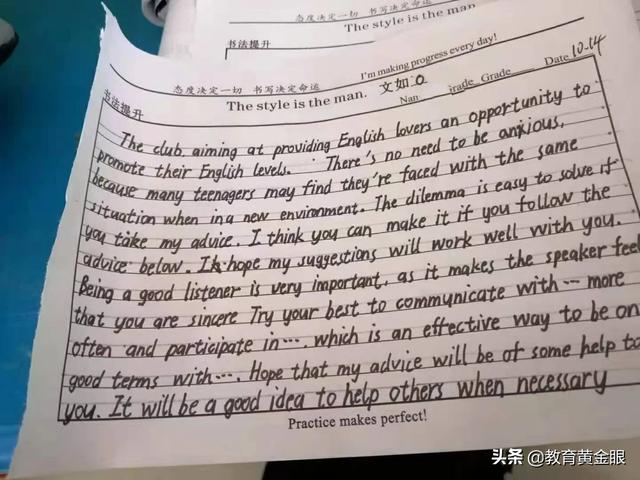 态度决定一切 书写决定命运
书法提升 The style is the man.
I'm making progress every day!
态度决定一切 书写决定命运
书法提升 The style is the man. Grade Date 10-14
The club aiming at providing English lovers an opportunity to
promote their English levels. There's no need to be anxious,
because many teenagers may find they're faced with the same
situation when in a new environment. The dilemma is easy to solve if
you take my advice. I think you can make it if you follow the
advice below. I hope my suggestions will work well with you.
Being a good listener is very important, as it makes the speaker feel
that you are sincere Try your best to communicate with ... more
often and participate in ..., which is an effective way to be on
good terms with .... Hope that my advice will be of some help to
you. It will be a good idea to help others when necessary
Practice makes perfect!
头条 @教育黄金眼